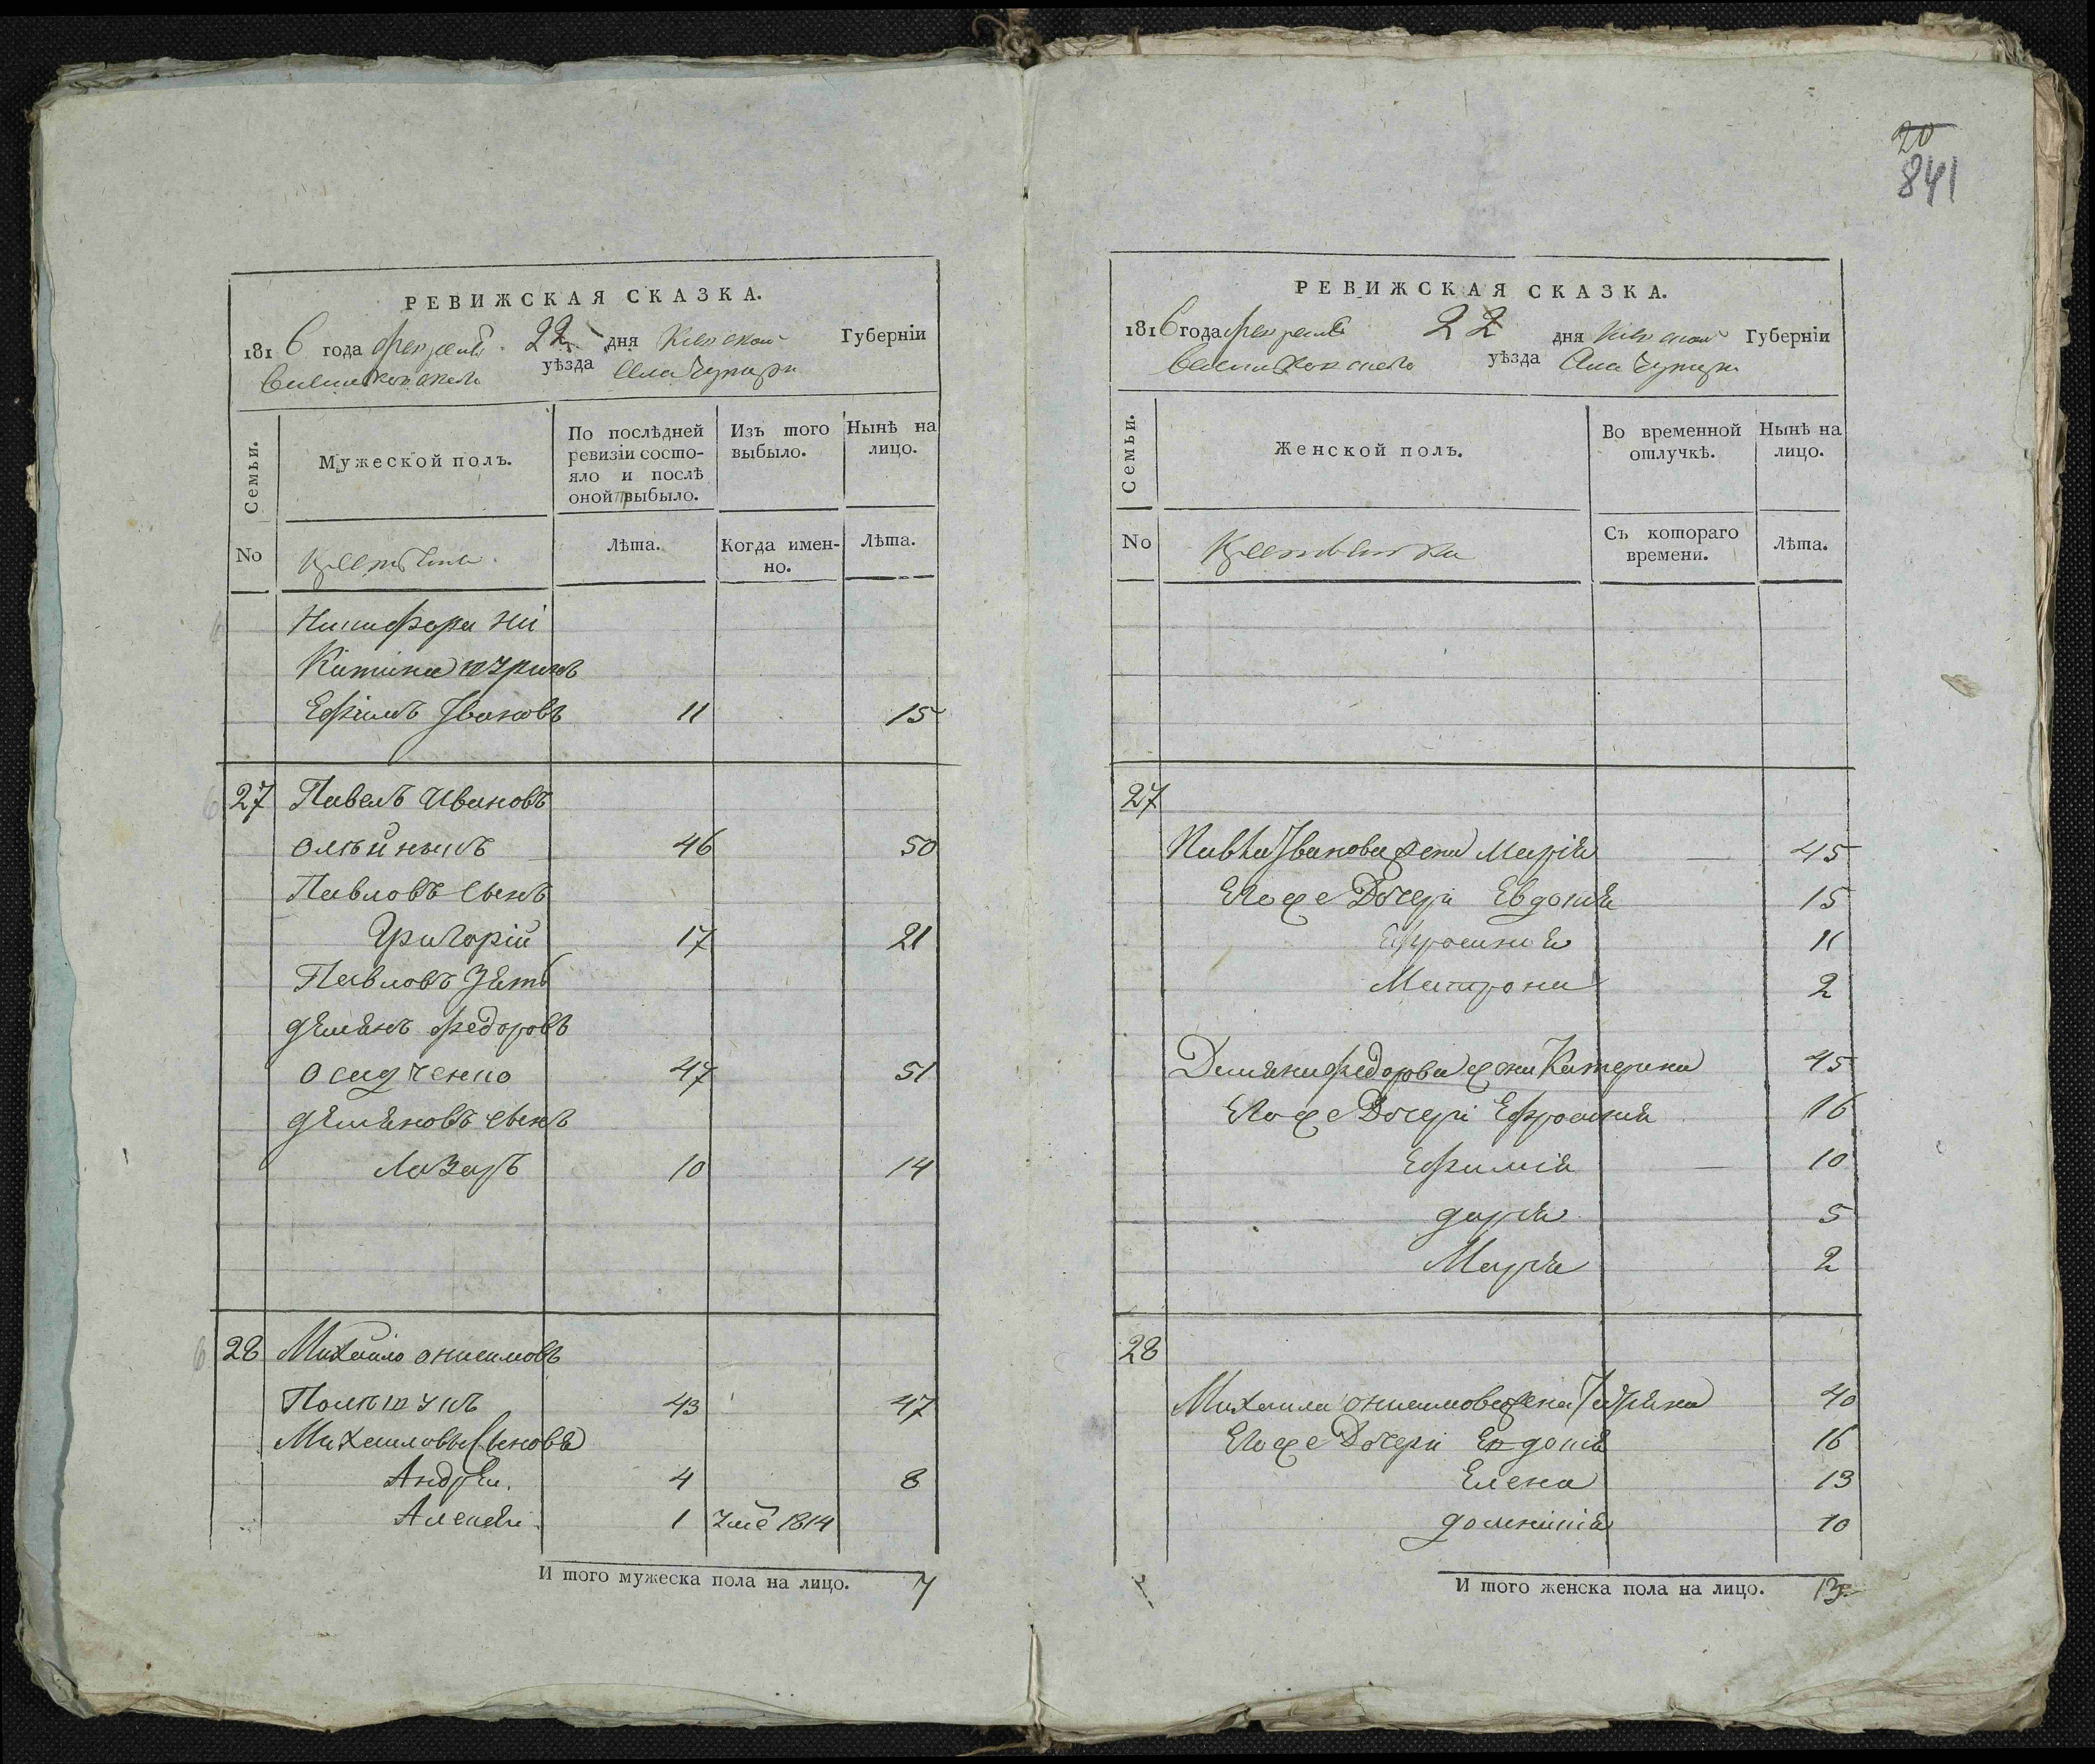 20
841
РЕВИЖСКАЯ СКАЗКА.
1816 года февраля 22 дня Киевской Губерніи
Васильковскаго уѣзда Села Чупыри
Семьи.
Мужеской полъ.
По послѣдней ревизіи состояло и послѣ оной выбыло.
Изъ того выбыло.
Нынѣ на лицо.
No
Крестьяне
Лѣта.
Когда именно.
Лѣта.
Никифора Ни
Китина
Ефимъ Ивановъ 11 15
27 Павелъ Ивановъ
Олѣйникъ 46 50
Павловъ Сынъ
Григорій 17 21
Павловъ Зять
Демянъ Федоровъ
Осадченко 47 51
Демяновъ сынъ
Лазаръ 10 14
28 Михайло Онисимовъ
43 47
Михаиловы Сыновья
Андрей 4 8
Алексей 1 1814
И того мужеска пола на лицо. 7
РЕВИЖСКАЯ СКАЗКА.
1816 года февраля 22 дня Киевской Губерніи
Васильковскаго уѣзда Села Чупыри
Семьи.
Женской полъ.
Во временной отлучкѣ.
Нынѣ на лицо.
No
Крестьянки
Съ котораго времени.
Лѣта.
27
Павла Иванова жена Марія — 45
Его же Дочери Евдокія 15
Ефросинія 11
Матрона 2
Демяна Федорова жена Катерина 45
Его же Дочери Ефросинія 16
Ефимія — 10
Дарія 5
Марія 2
28
Михаила Онисимова жена 40
Его же Дочери Евдокія 16
Елена 13
Домникія 10
И того женска пола на лицо. 13